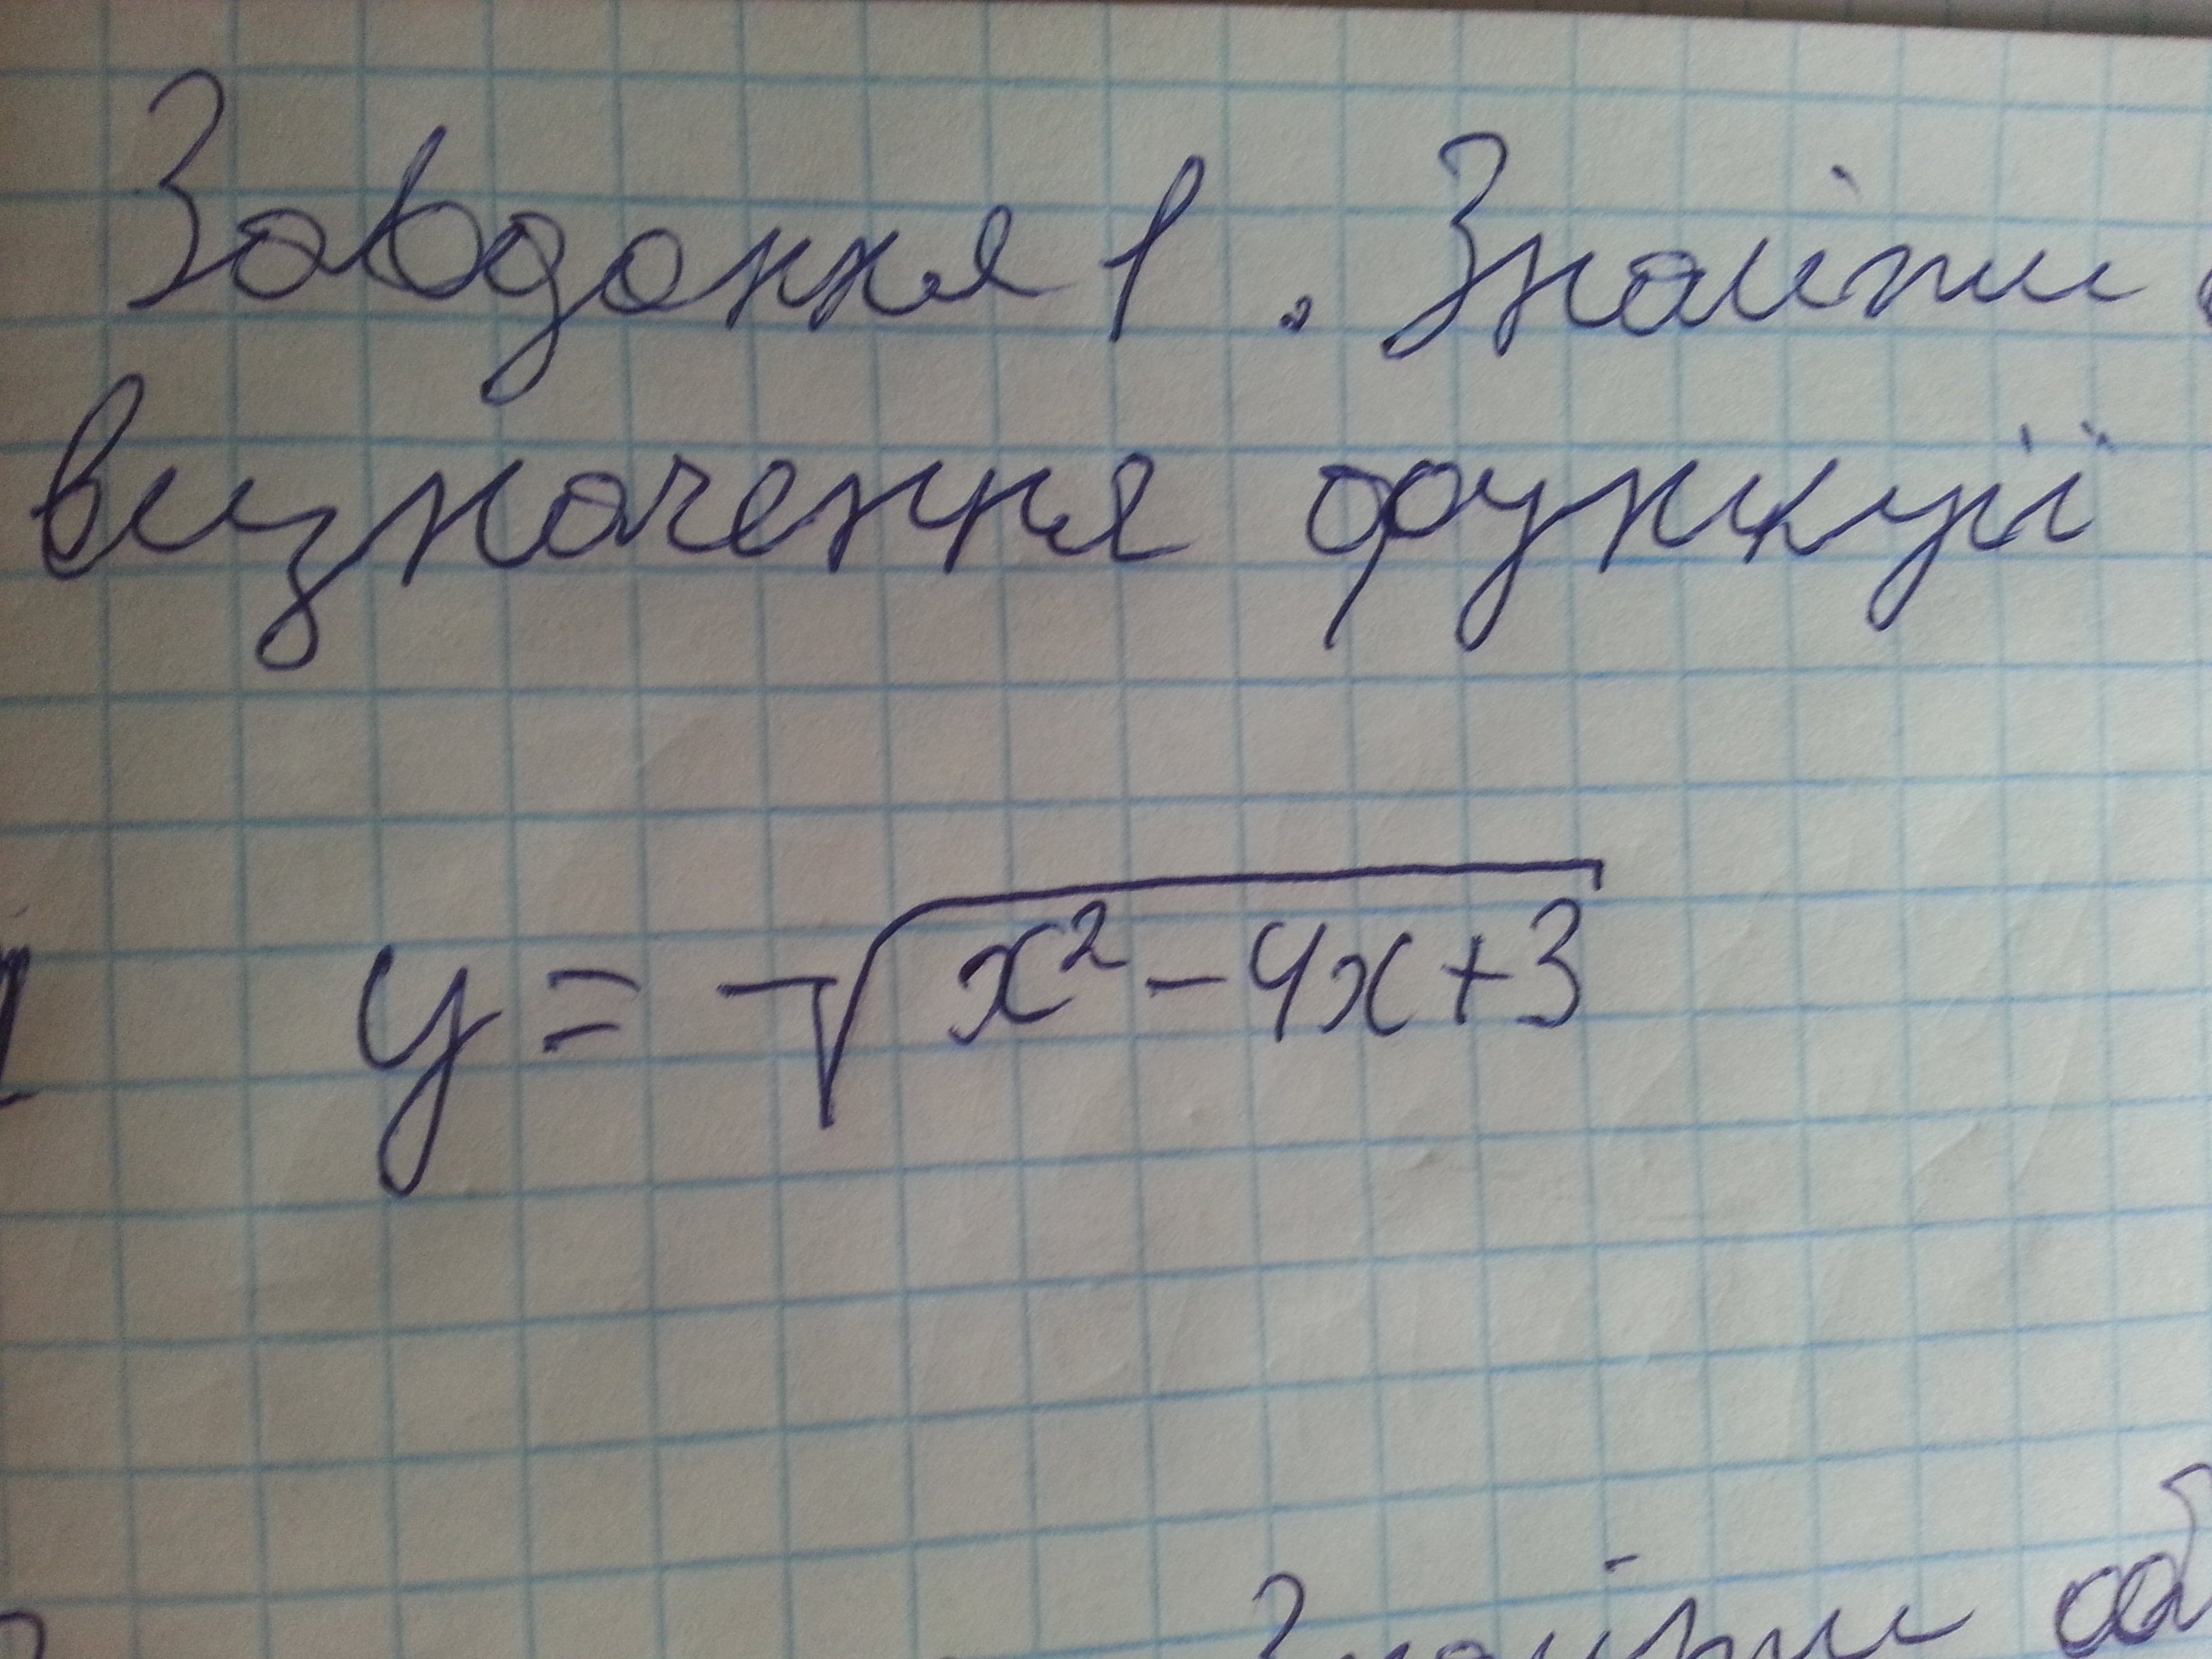 Завдання 1. Знайти
визначення функції
y = √x² - 4x + 3
Знайти об